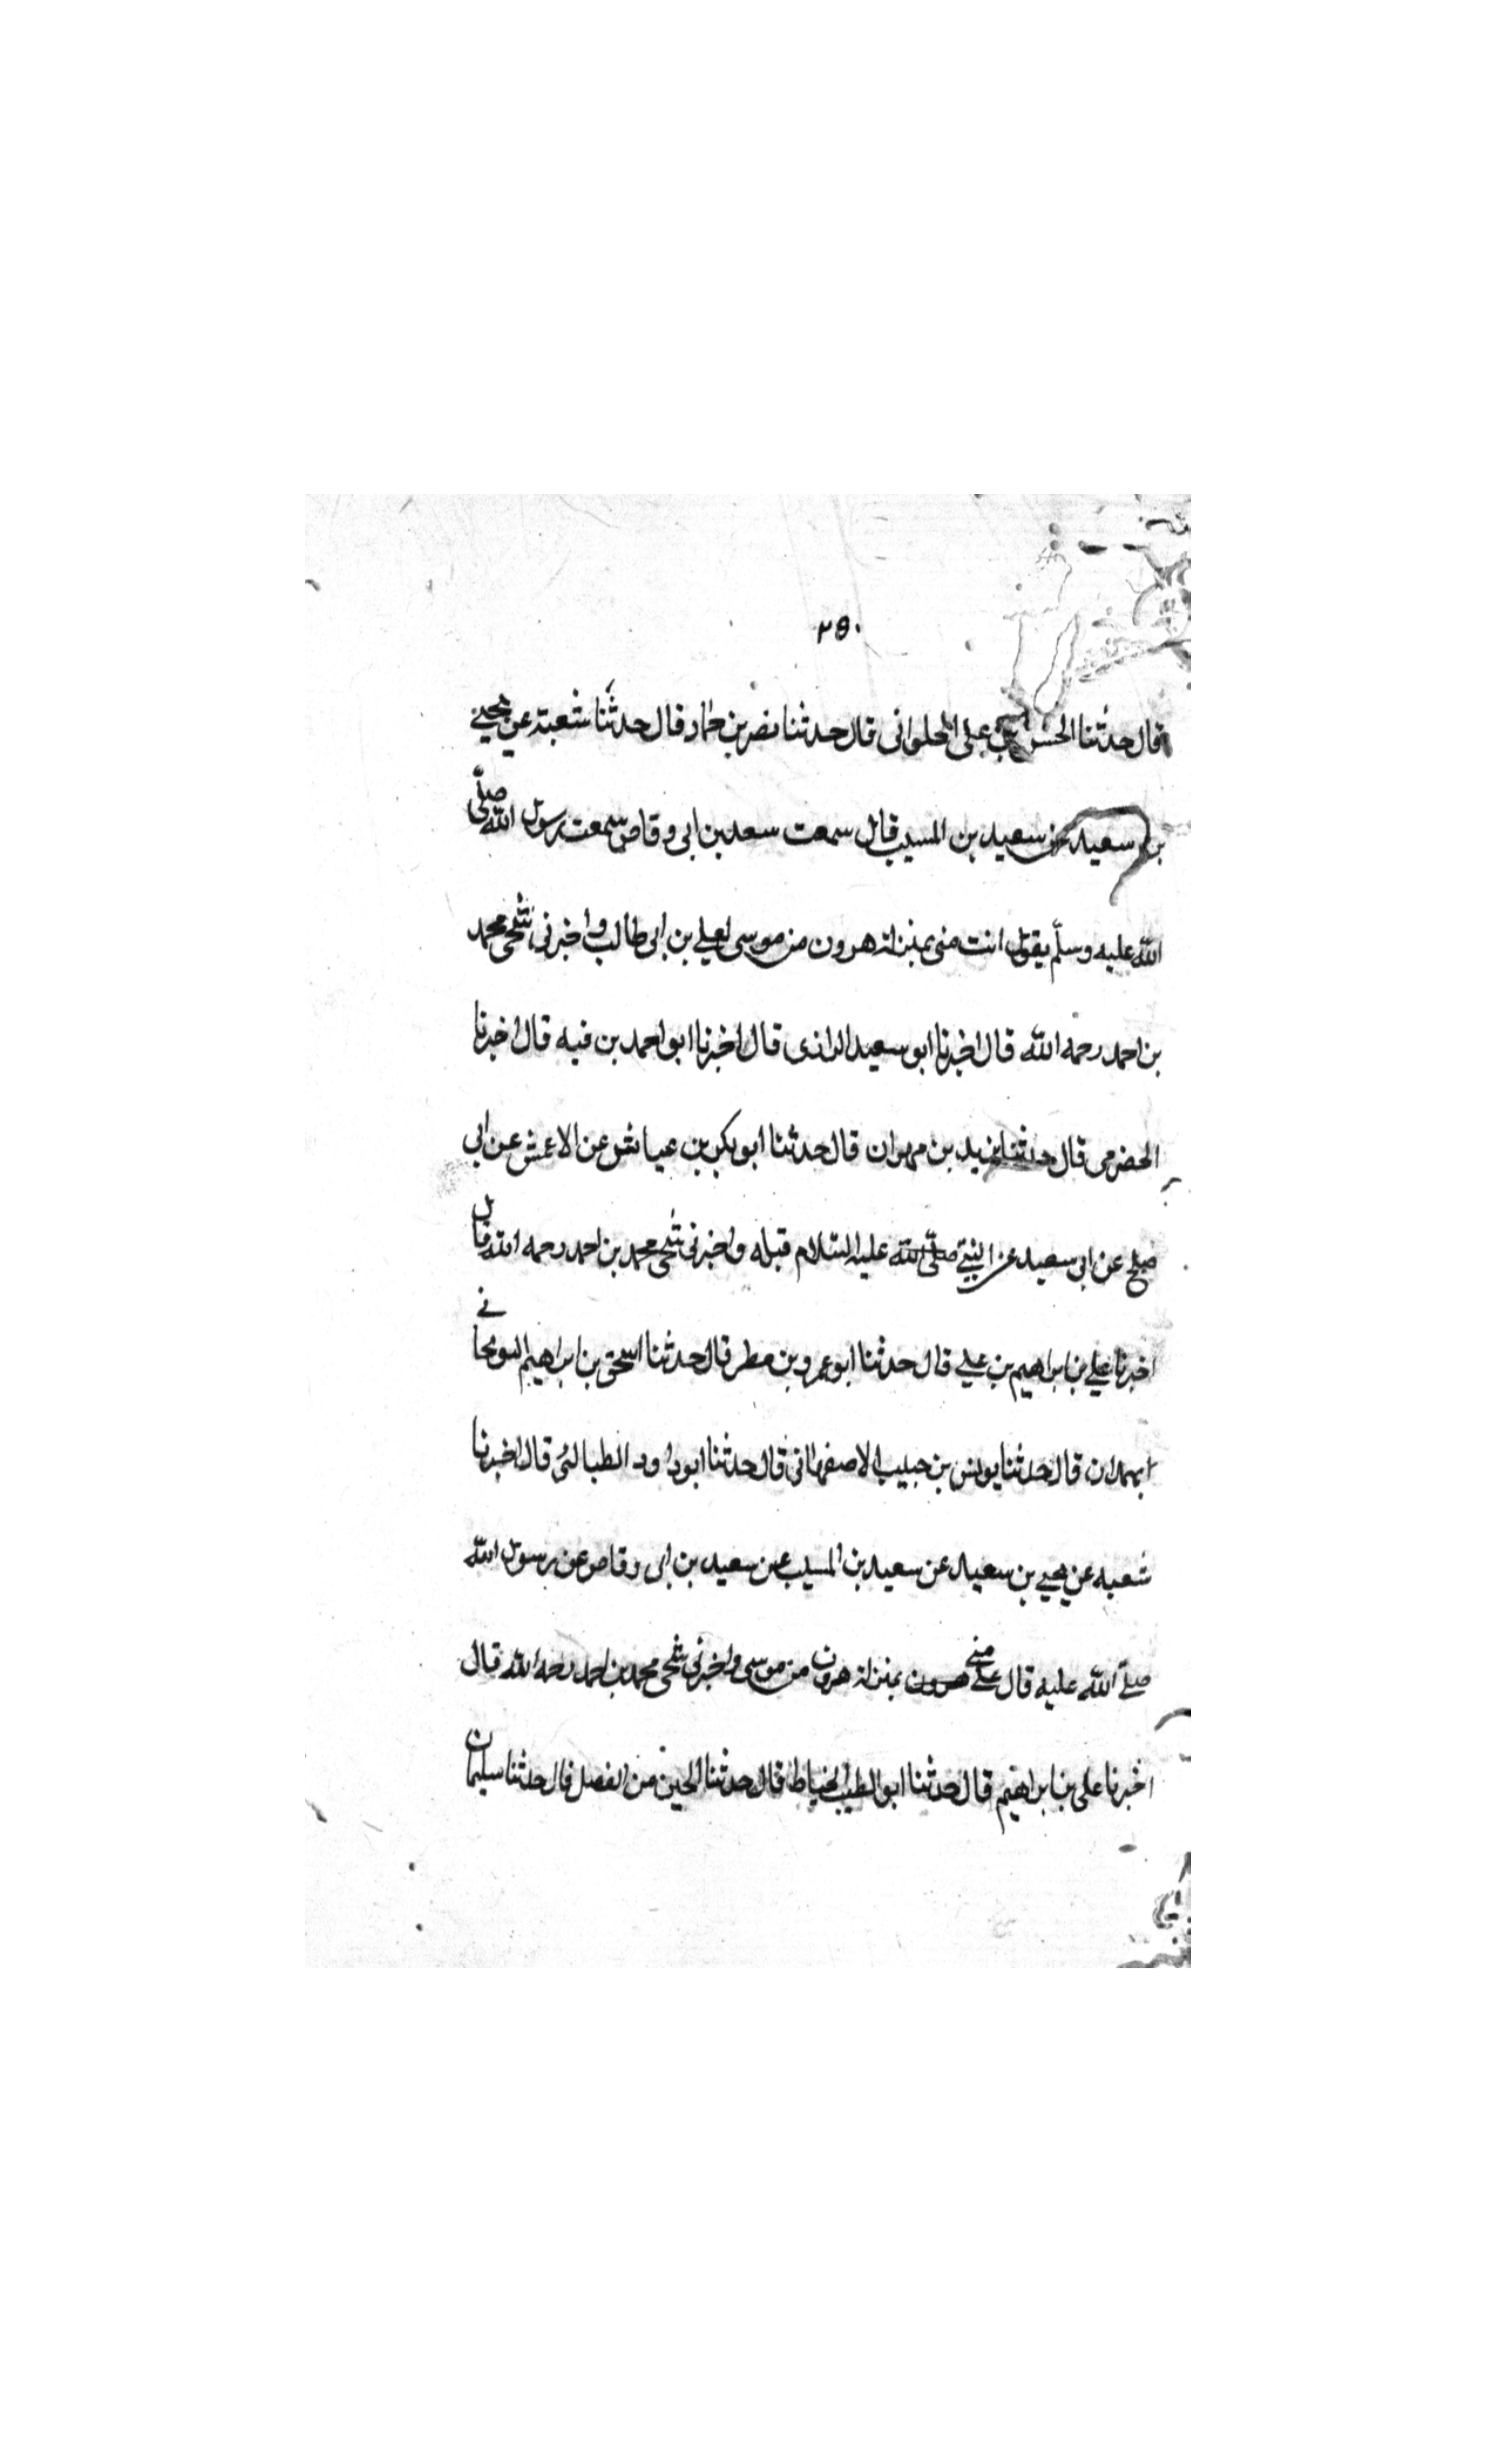 ٢٥٠
قال حدثنا الحسن بن على الحلوانى قال حدثنا نصر بن حماد قال حدثنا شعبة عن يحيى
بن سعيد عن سعيد بن المسيب قال سمعت سعد بن ابى وقاص سمعت رسول الله صلّى
الله عليه وسلّم يقول انت منى بمنزلة هرون من موسى لعلى بن ابى طالب واخبرنى شيخى محمد
بن احمد رحمه الله قال اخبرنا ابو سعيد الرازى قال اخبرنا ابو احمد بن فيه قال اخبرنا
الحضرمى قال حدثنا يزيد بن مهران قال حدثنا ابو بكر بن عياش عن الاعمش عن ابى
صلح عن ابى سعيد عن النبى صلّى الله عليه السّلام قبله واخبرنى شيخى محمد بن احمد رحمه الله قال
اخبرنا على بن ابراهيم بن على قال حدثنا ابو عمرو بن مطر قال حدثنا اسحق بن ابراهيم
قال حدثنا يونس بن حبيب الاصفهانى قال حدثنا ابو داود الطيالسى قال اخبرنا
شعبه عن يحيى بن سعيد عن سعيد بن المسيب عن سعيد بن ابى وقاص عن رسول الله
صلى الله عليه قال على منى هرون بمنزلة هرون من موسى واخبرنى شيخى محمد بن احمد رحمه الله قال
اخبرنا على بن ابراهيم قال حدثنا ابو الطيب الخياط قال حدثنا الحسين من الفضل قال حدثنا سليمان